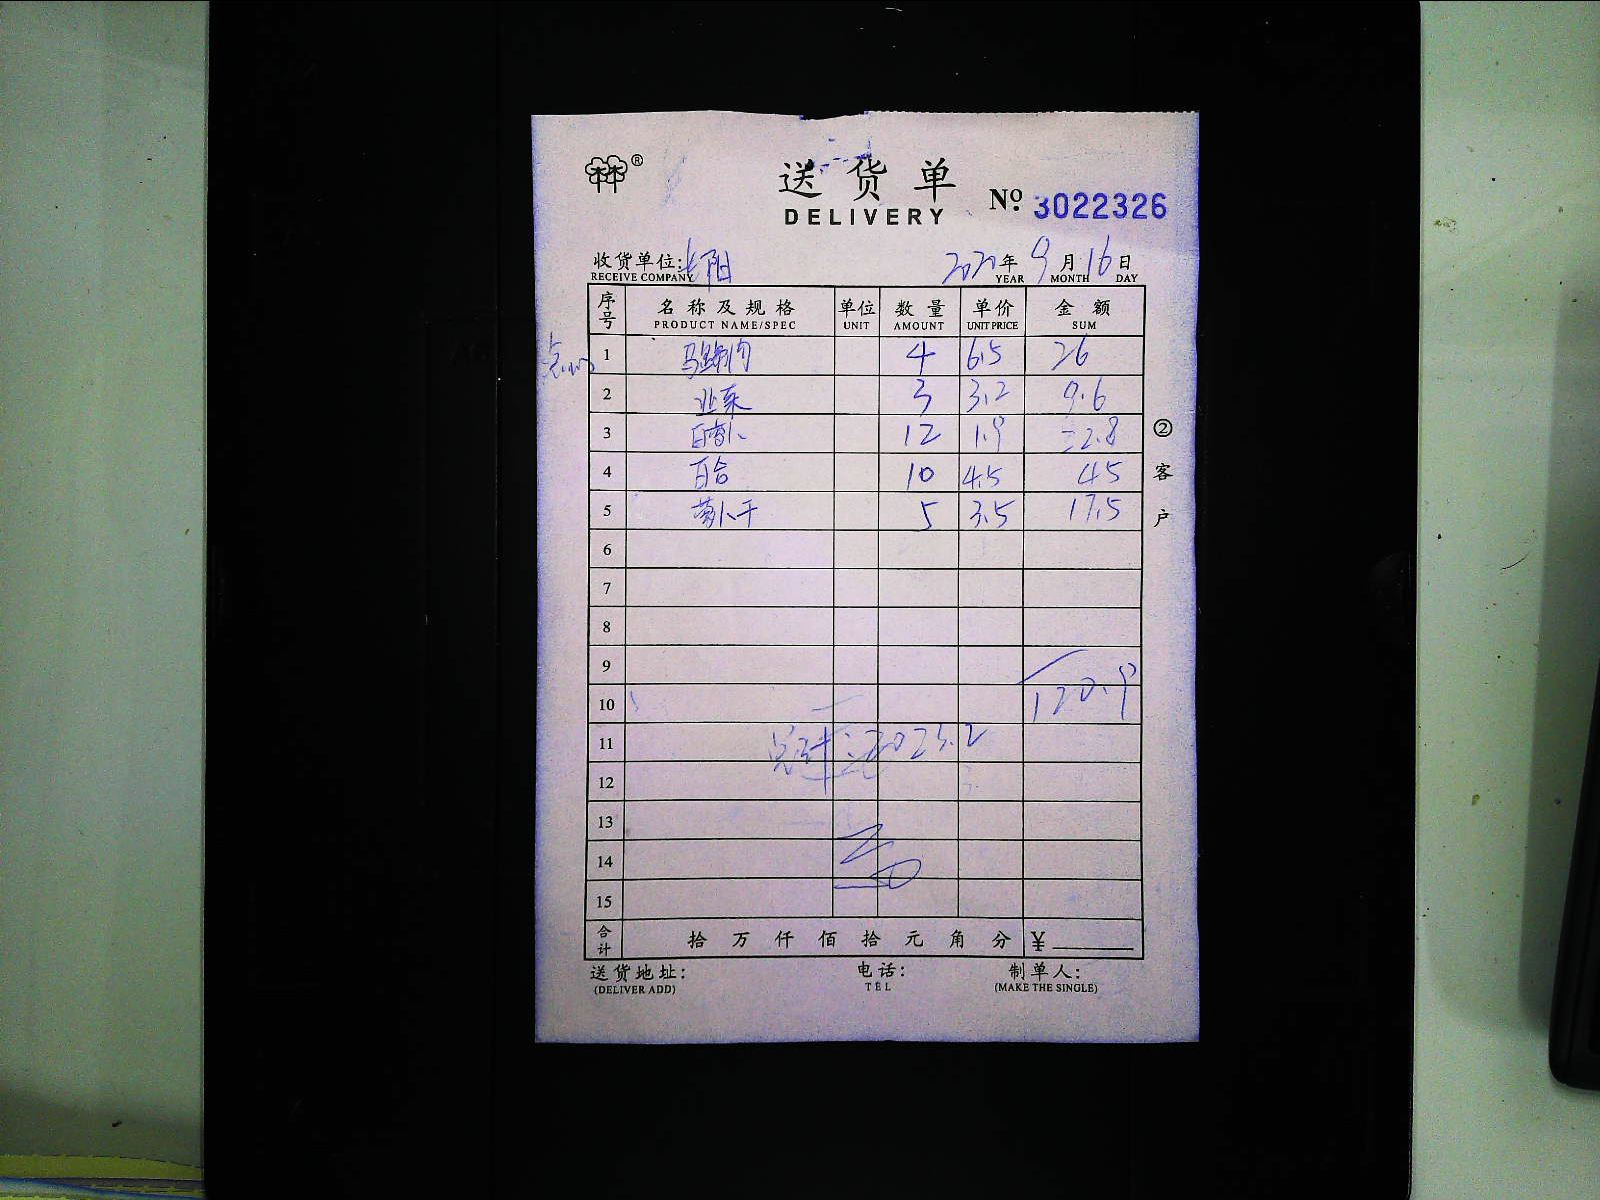 林®
送货单
DELIVERY
No. 3022326
收货单位: 长阳 2020年9月16日
RECEIVE COMPANY YEAR MONTH DAY
序号 名称及规格 单位 数量 单价 金额
PRODUCT NAME/SPEC UNIT AMOUNT UNIT PRICE SUM
1 4 6.5 26
2 韭菜 3 3.2 9.6
3 白萝卜 12 1.9 22.8
4 百合 10 4.5 45
5 萝卜干 5 3.5 17.5
6
7
8
9
10 120.9
11 总计:2025.2
12
13
14
15
合计 拾 万 仟 佰 拾 元 角 分 ¥
送货地址: 电话: 制单人:
(DELIVER ADD) TEL (MAKE THE SINGLE)
②客户